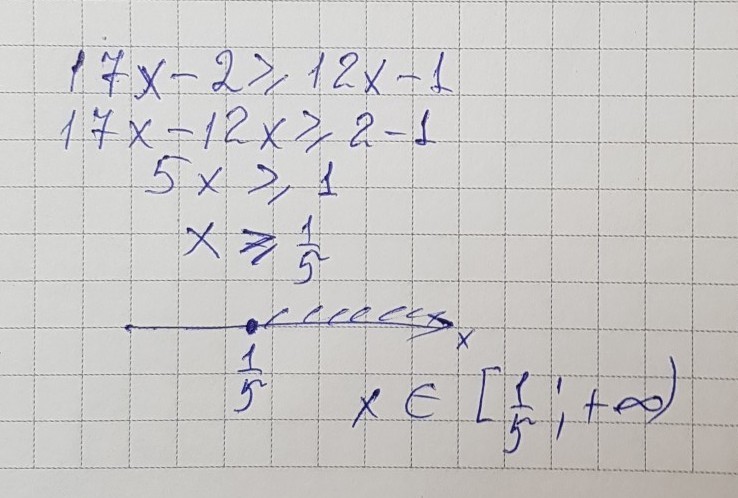 17x-2⩾12x-1
17x-12x⩾2-1
5x⩾1
x⩾1/5
x
1/5
x∈[1/5;+∞)